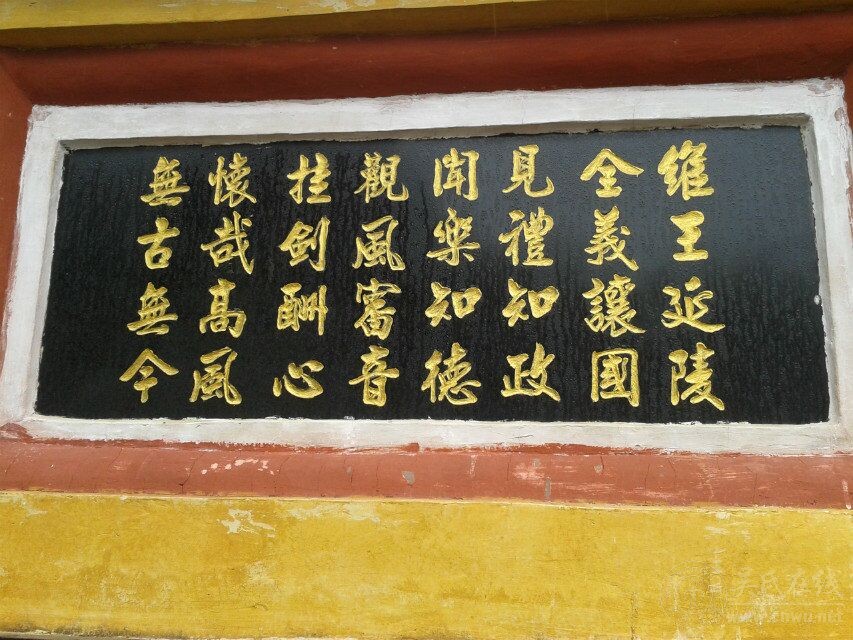 維王延陵
全義讓國
見禮知政
聞樂知德
觀風審音
挂劍酬心
懷哉高風
無古無今
吴氏在线